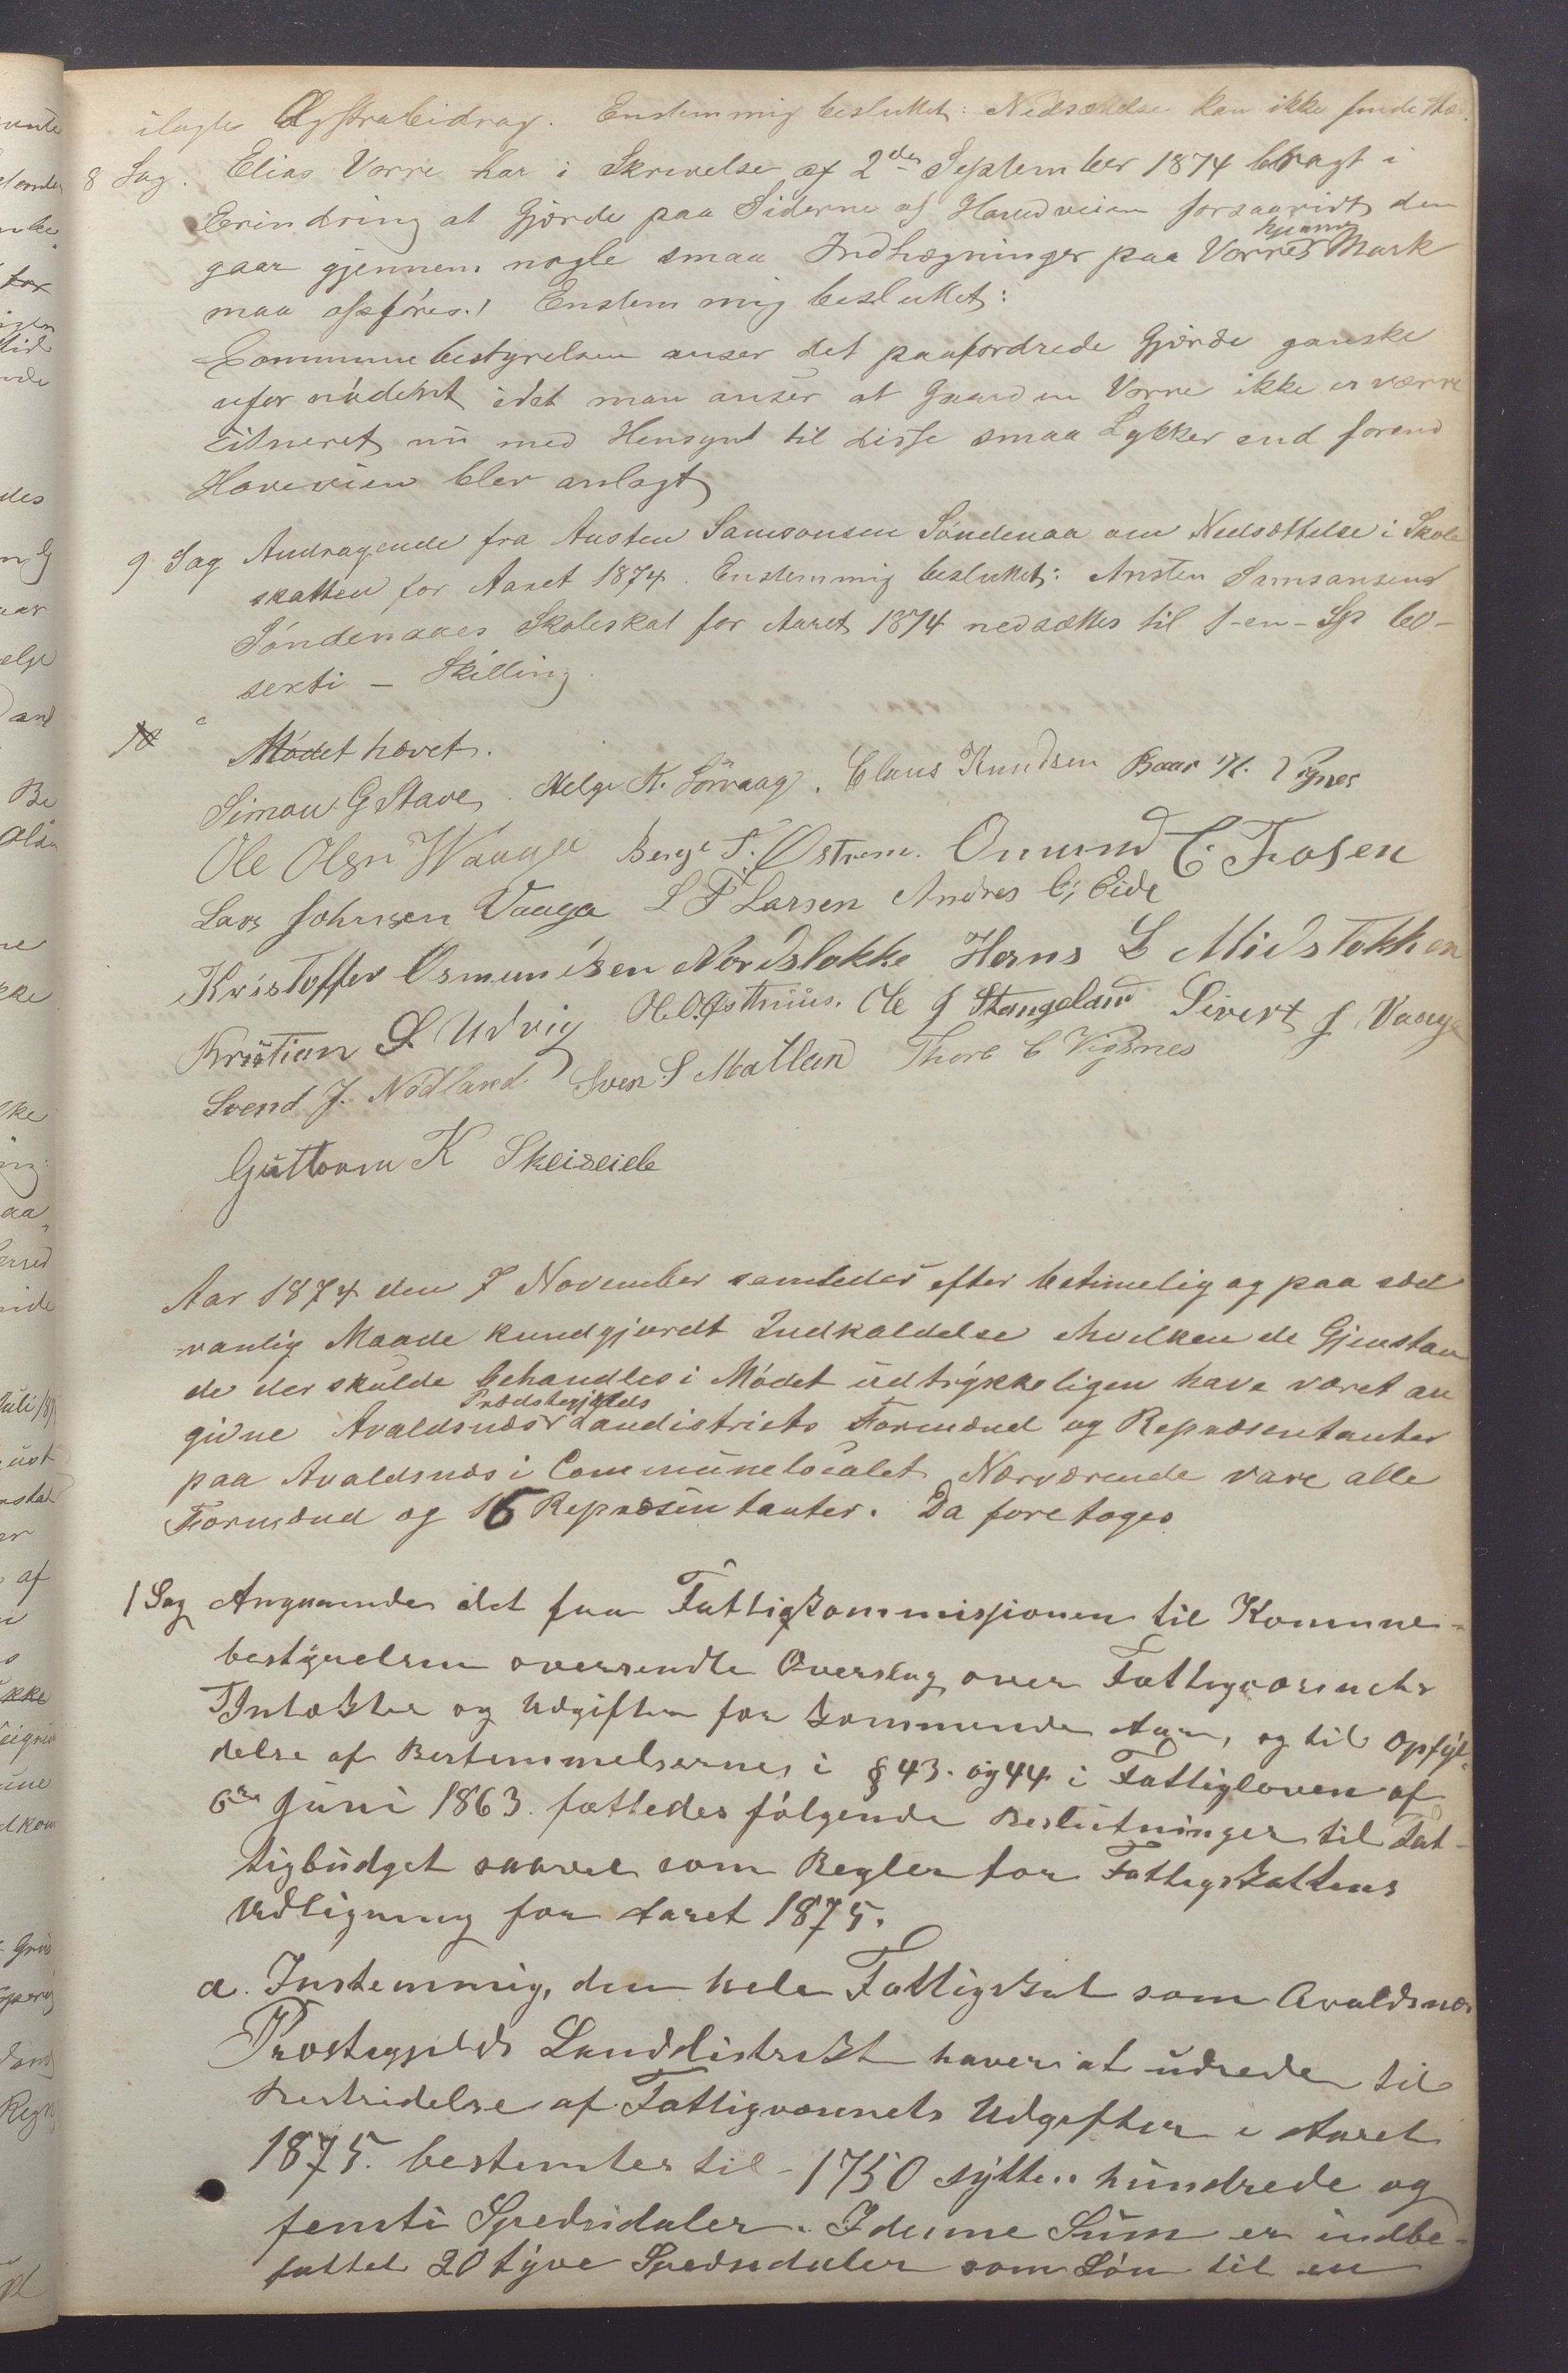 ilagte Ægstrabidrag. Enstemmig besluttet: Nedsættelse kan ikke finde Sted.
8 Sag. Elias Vorre har i Skrivelse af 2den September 1874 bragt i
Erindring at Gjærde paa Siderne af Hovedveien forsaavidt den
gaar gjennem nogle smaa Indhægninger paa Vorres hjemme Mark
maa opføres.! Enstemmig besluttet:
Communebestyrelsen anser det paafordrede Gjærde ganske
ufornødent idet man anser at Gaarden Vorre ikke er værre
sitneret nu med Hensynt til disse smaa Lykker end forend
Hoveveien blev anlagt
9 Sag Andragende fra Austen Samsonsen Søndenaa om Nedsættelse i Skole
skatten for Aaret 1874. Enstemmig besluttet: Ansten Samsansens
Søndenaaes Skoleskat for Aaret 1874 nedsættes til 1-en-Sp 60-
sexti - Skilling.
10
Mødet hævet.
Simon G Stave. Helge K. Sørvaag. Claus Knudsen Baar K. Vignes
Ole Olsen Waage Berge T. Østrem. Omund C. Frosen
Lars Johnsen Vaaga L F Larsen Andres C; Eide
Kristoffer Osmundsen Nordstokke Hans L Midstokken
Kristian L Udvig O. O. Østhuus. Ole J Stangeland Sivert J. Vaage
Svend J. Nødland. Sven S Matland Thore C Vigsnes
Guttorm K Skeiseide
Aar 1874 den 7 November samledes efter betimelig og paa sæd
vanlig Maade kundgjørdt Indkaldelse hvilken de Gjenstan
de der skulde behandles i Mødet udtrykkeligen have været an
givne Avaldsnæs Prædstegjælds Landistricts Formænd og Repræsentanter
paa Avaldsnæs i Communelocalet Nærværende vare alle
Formænd og 16 Repræsentanter. Da foretoges
1 Sag Angaaende det fra Fattigkommissionen til Kommune-
bestyrelsen oversendte Overslag over Fattigvæsenets
Intækter og Udgifter for kommende Aar, og til Opfyl-
delse af Bestemmelsernes i § 43. og 44 i Fattigloven af
6te Juni 1863. fattedes følgende Beslutninger til Fat-
tigbudget saavel som Regler for Fattigskattens
Udligning for Aaret 1875.
a. Instemmig, den hele Fattigskat som Avaldsnæs
Prostegjelds Landdistrikt haver at udrede til
Bestridelse af Fattigvæsenets Udgifter i Aaret
1875. bestemtes til - 1750 sytten hundrede og
femti Spedsidaler. I denne Sum er indbe-
fattet 20 tyve Spedsidaler som Løn til en